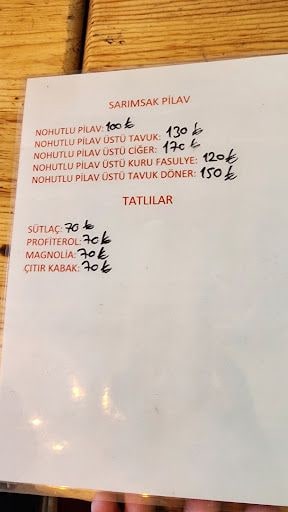 SARIMSAK PİLAV
NOHUTLU PİLAV: 100 ₺
NOHUTLU PİLAV ÜSTÜ TAVUK: 130 ₺
NOHUTLU PİLAV ÜSTÜ CİĞER: 170 ₺
NOHUTLU PİLAV ÜSTÜ KURU FASULYE: 120 ₺
NOHUTLU PİLAV ÜSTÜ TAVUK DÖNER: 150 ₺
TATLILAR
SÜTLAÇ: 70 ₺
PROFİTEROL: 70 ₺
MAGNOLİA: 70 ₺
ÇITIR KABAK: 70 ₺